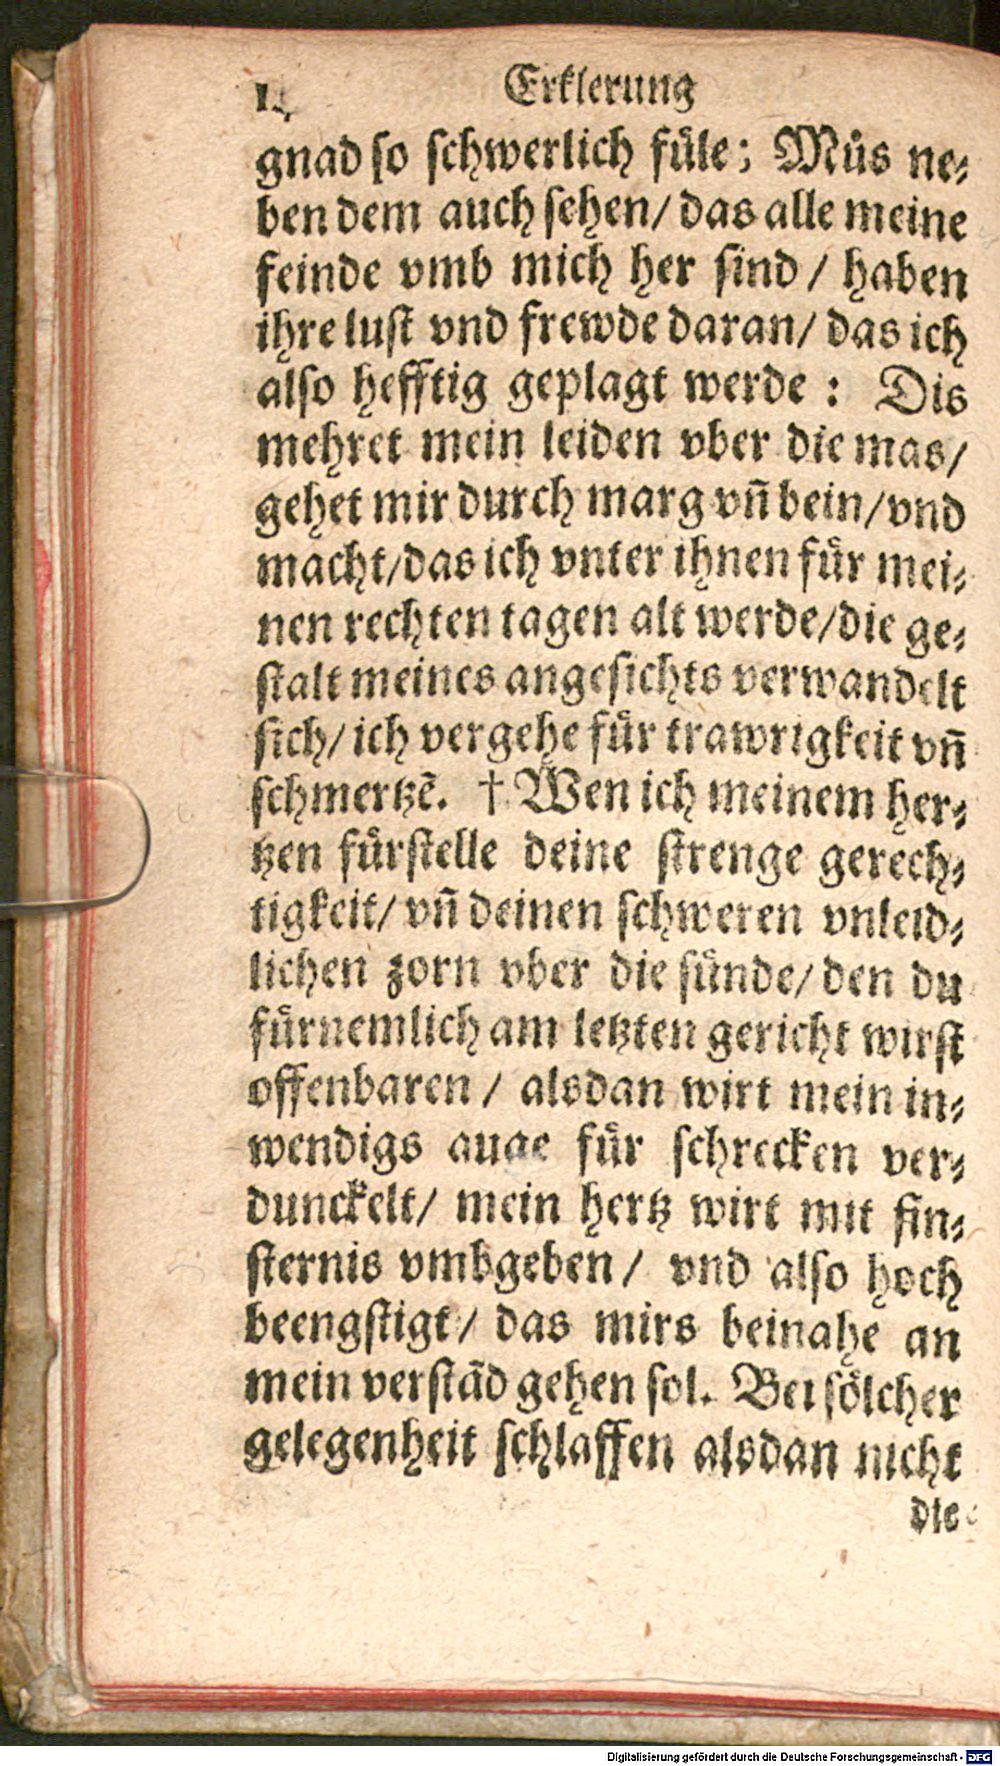 14 Erklerung
gnad so schwerlich fůle; Můs ne⸗
ben dem auch sehen/ das alle meine
feinde vmb mich her sind / haben
ihre lust vnd frewde daran/ das ich
also hefftig geplagt werde : Dis
mehret mein leiden vber die mas/
gehet mir durch marg vn̄ bein/vnd
macht/das ich vnter ihnen fůr mei⸗
nen rechten tagen alt werde/die ge⸗
stalt meines angesichts verwandelt
sich/ ich vergehe fůr trawrigkeit vn̄
schmertzē. † Wen ich meinem her⸗
tzen fůrstelle deine strenge gerech⸗
tigkeit/ vn̄ deinen schweren vnleid⸗
lichen zorn vber die sůnde/ den du
fůrnemlich am letzten gericht wirst
offenbaren / alsdan wirt mein in⸗
wendigs auge fůr schrecken ver⸗
dunckelt/ mein hertz wirt mit fin⸗
sternis vmbgeben / vnd also hoch
beengstigt/ das mirs beinahe an
mein verstād gehen sol. Bei sölcher
gelegenheit schlaffen alsdan nicht
die
Digitalisierung gefördert durch die Deutsche Forschungsgemeinschaft - DFG